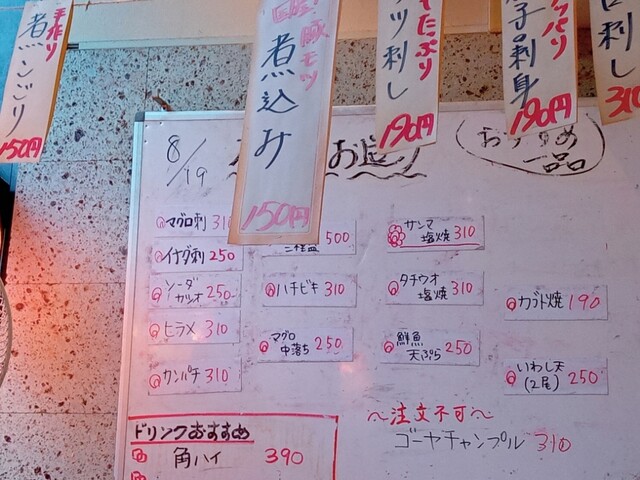 手作り
煮こごり
150円
豚モツ
煮込み
150円
たっぷり
ツ刺し
190円
刺身
190円
刺し
310
8/19
おすすめ
一品
マグロ刺 310
イナダ刺 250
ソーダ
カツオ 250
ヒラメ 310
カンパチ 310
500
ハチビキ 310
マグロ
中落ち 250
サンマ
塩焼 310
タチウオ
塩焼 310
鮮魚
天ぷら 250
カブト焼 190
いわし天
(2尾) 250
ドリンクおすすめ
角ハイ 390
〜注文不可〜
ゴーヤチャンプル 310